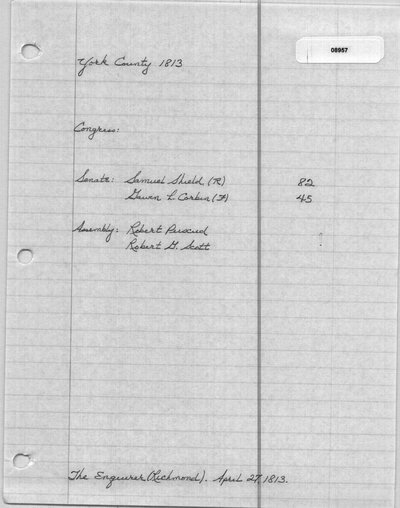 08957
York County 1813
Congress:
Senate: Samuel Shield (R) 82
Gawen L Corbin (F) 45
Assembly: Robert
Robert G. Scott
The Enquirer (Richmond). April 27, 1813.